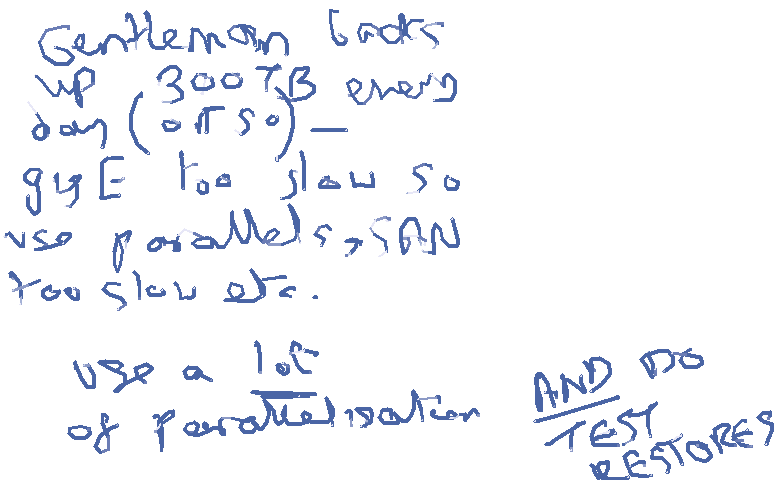 Gentleman backs
up 300TB every
day (or so) —
gigE too slow so
use parallels, SAN
too slow etc.
use a lot
of parallelisation
AND DO
TEST
RESTORES